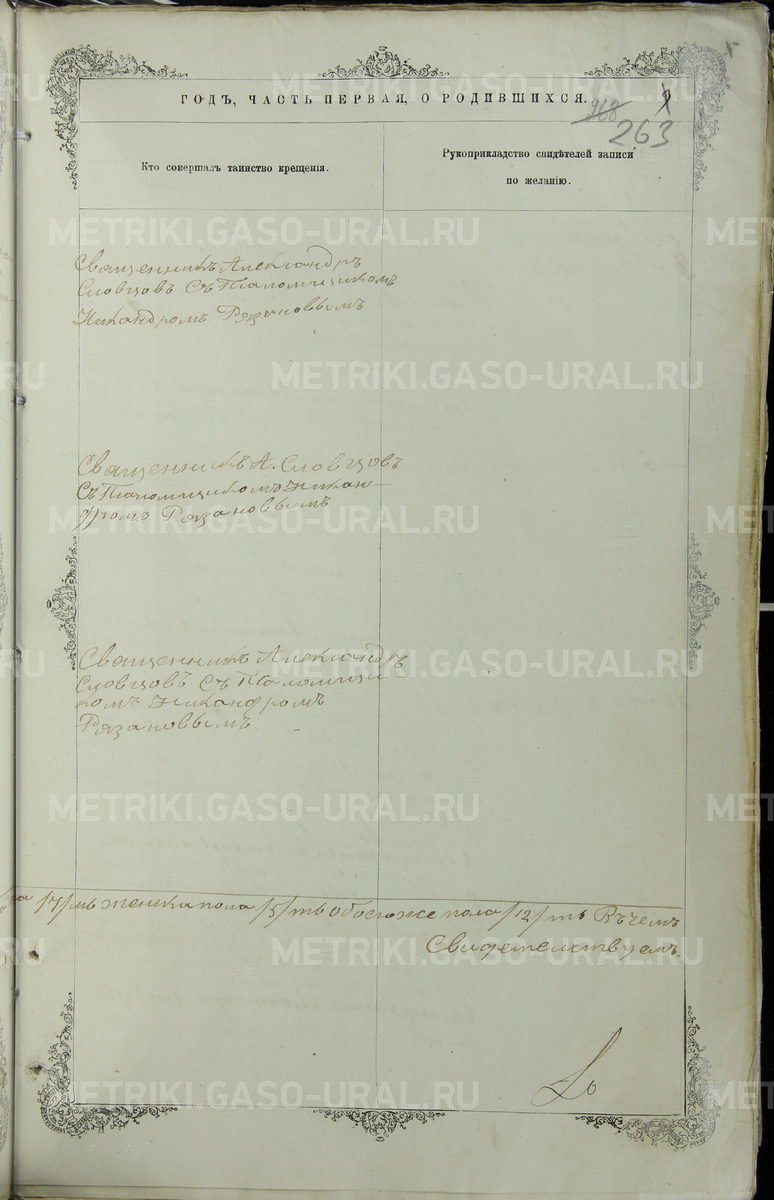 ГОДЪ, ЧАСТЬ ПЕРВАЯ, О РОДИВШИХСЯ.
268
263
Кто совершалъ таинство крещенія.
Рукоприкладство свидѣтелей записи
по желанію.
Священникъ Александръ
Словцовъ съ Псаломщикомъ
Никандромъ Рязановымъ
Священникъ А. Словцовъ
съ Псаломщикомъ Никан-
дромъ Рязановымъ
Священникъ Александръ
Словцовъ съ Псаломщи
комъ Никандромъ
Рязановымъ.
/7/мь женска пола /5/ть обоегоже пола /12/ть Въ чемъ
Свидетелствуемъ.
METRIKI.GASO-URAL.RU